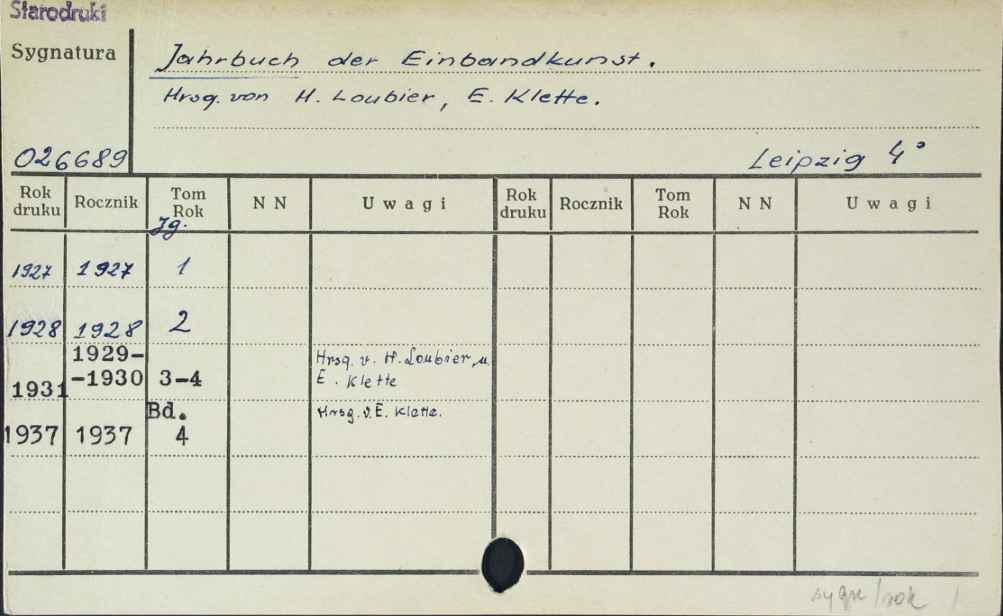 Starodruki
Sygnatura
Jahrbuch der Einbandkunst.
Hrsg. von H. Loubier, E. Klette.
026689
Leipzig 4°
Rok druku Rocznik Tom Rok N N Uwagi Rok druku Rocznik Tom Rok N N Uwagi
Jg.
1927 1927 1
1928 1928 2
1931 1929-
-1930 3-4 Hrsg. v. H. Loubier u.
E. Klette
Bd.
1937 1937 4 Hrsg. v. E. Klette.
sygn/rok